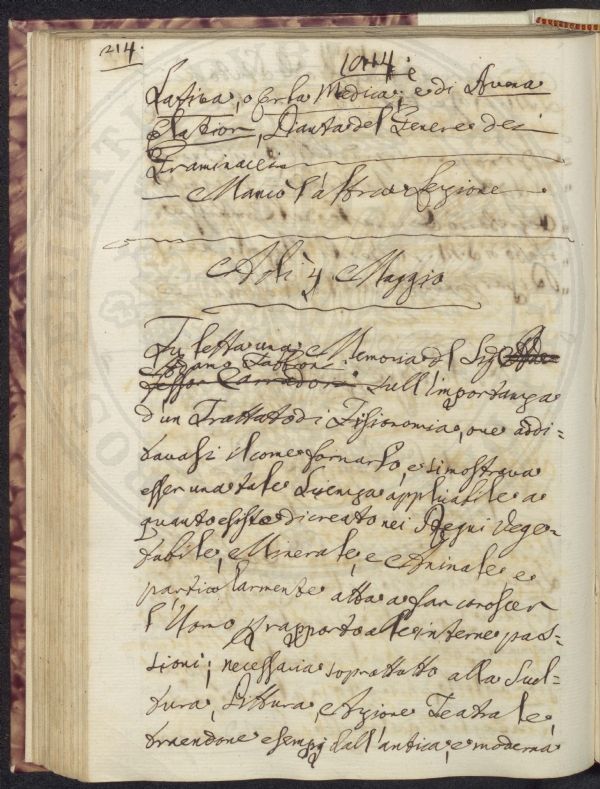 214.
1044
Sativa, o Erba Medica; e di Avena
Elatior, Pianta del Genere dei
Graminacei
Mancò l'altra Lezione
Adì 4 Maggio
Fu letta una Memoria del Sig.
Adamo Fabbroni
sull'importanza
d'un Trattato di Fisionomia, ove addi=
tavasi il come formarlo, e si mostrava
esser una tale Scienza applicabile a
quanto esiste di creato nei Regni Vege=
tabile, Minerale, e Animale, e
particolarmente atta a far conoscer
l'Uomo per rapporto alle interne pas=
sioni; necessaria soprattutto alla Scul=
tura, Pittura, e Azione Teatrale,
traendone esempj dall'antica, e moderna